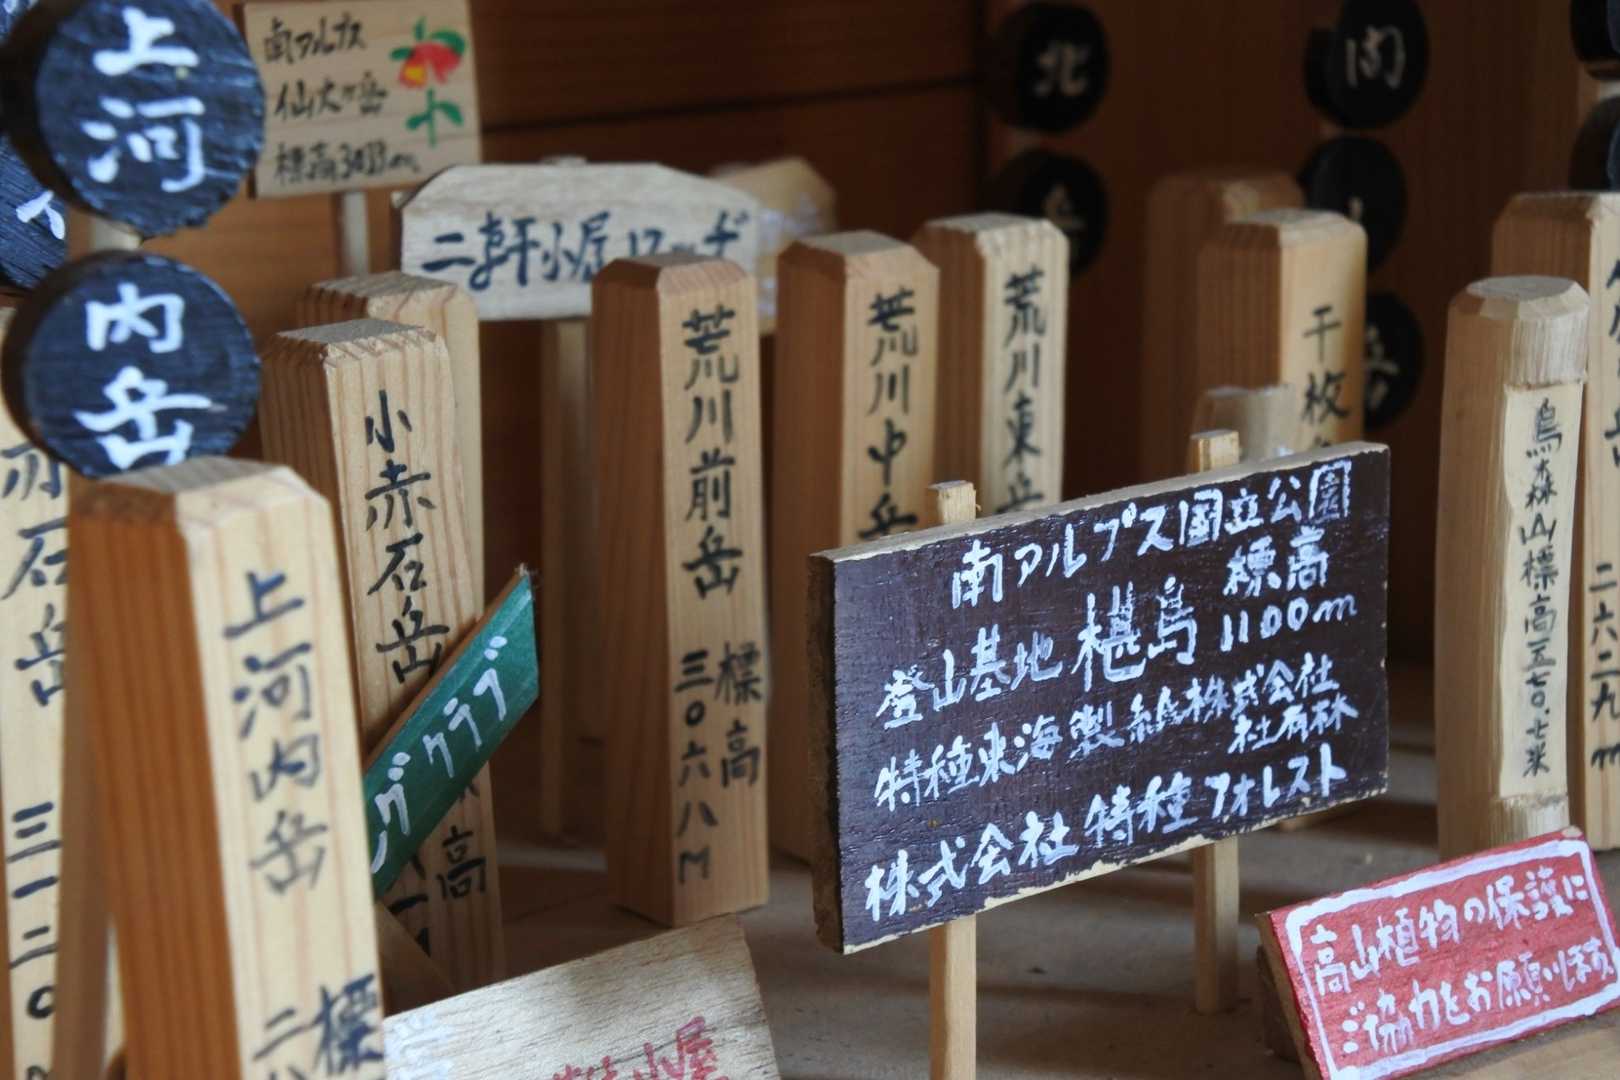 上河
内岳
南アルプス
仙丈ヶ岳
標高3033m
二軒小屋ロッヂ
北
岳
間
岳
赤石岳
三一二〇
上河内岳
標
小赤石岳
高
グクラブ
荒川前岳
標高
三〇六八M
荒川中岳
荒川東岳
干枚
南アルプス国立公園
登山基地 椹島 標高
1100m
特種東海製紙株式会社
社有林
株式会社 特種フォレスト
烏森山標高五七〇.七米
二六二九m
小屋
高山植物の保護に
ご協力をお願いします